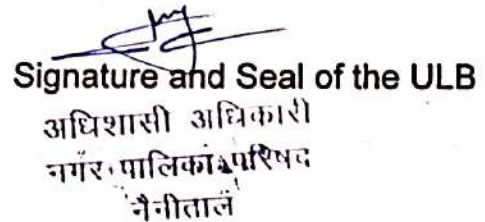 Signature and Seal of the ULB
अधिशासी अधिकारी
नगर पालिका परिषद
नैनीताल